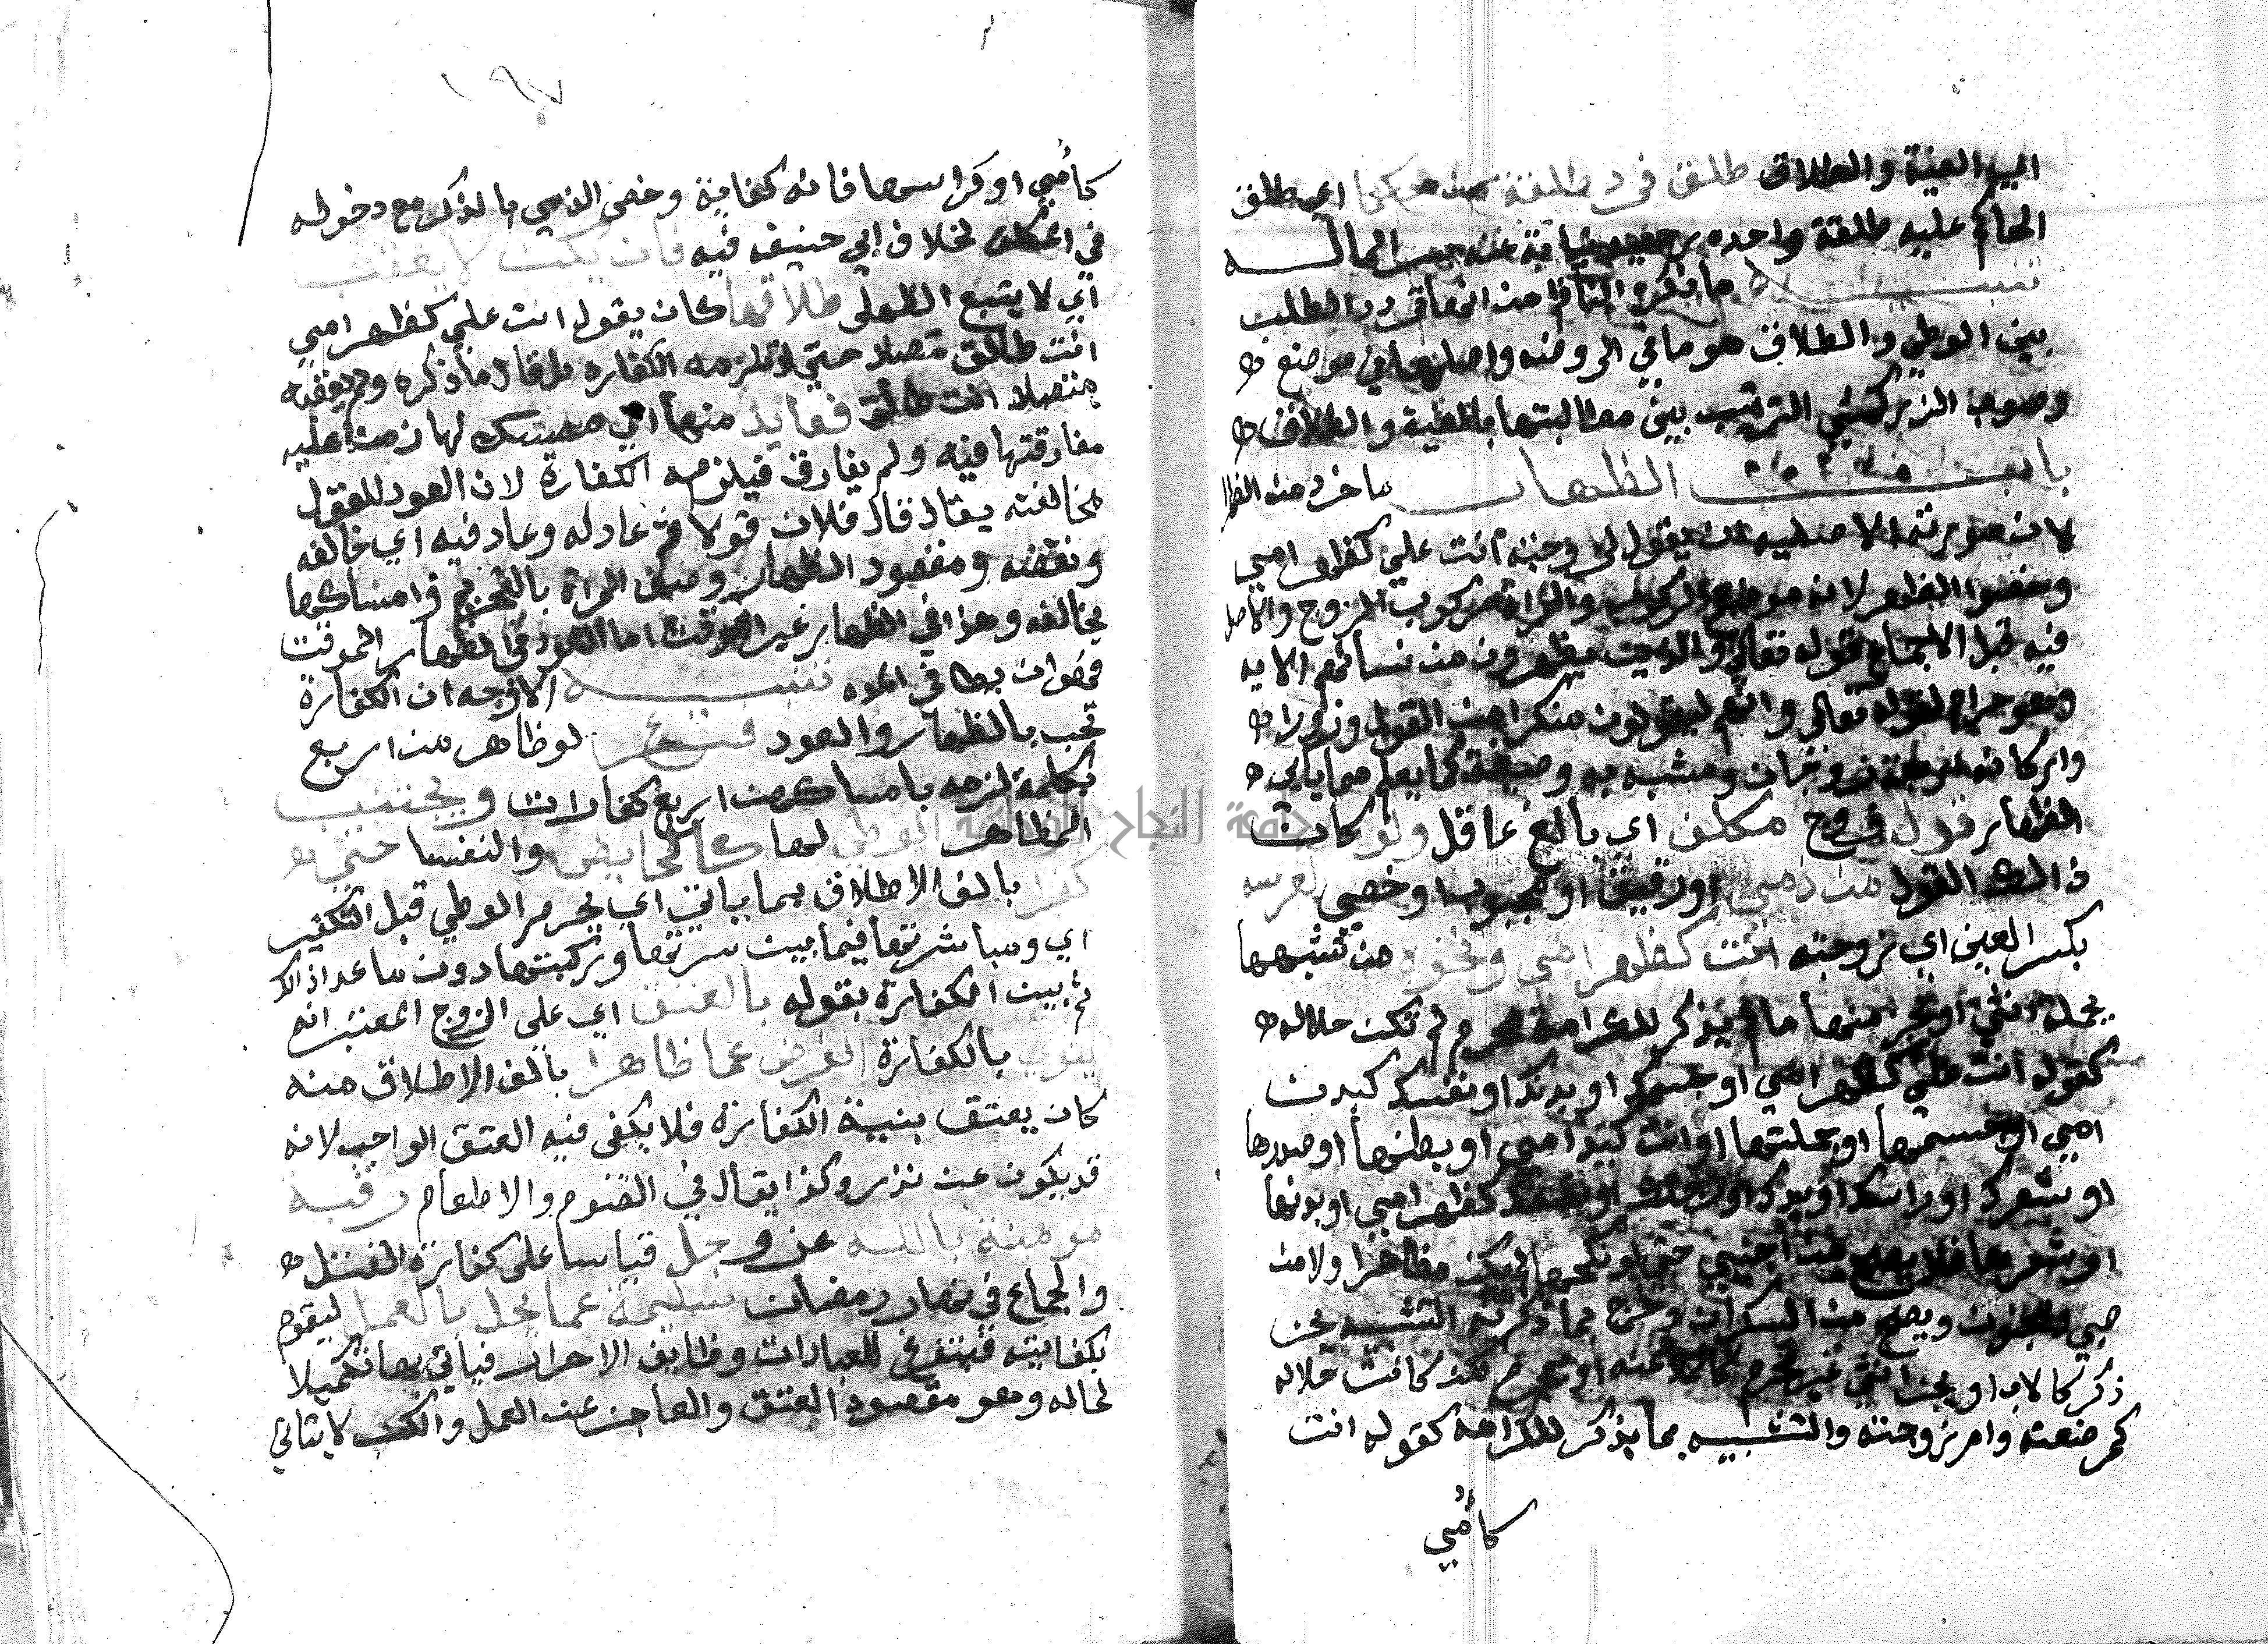 اي الفية والطلاق طلق فرد طلقة من حكما اي طلق
الحاكم عليه طلقة واحده رجعية نيابة عنه
تنبيه ما ذكره الناظم من انها تردد الطلب
بين الوطي والطلاق هو ما في الروضه واصلها في موضع
وصوب الزركشي الترتيب بين مطالبتها بالفية والطلاق
باب الظهار ماخوذ من الظهر
لان صورته الاصلية ان يقول لزوجته انت علي كظهر امي
وخصوا الظهر لانه موضع الركوب والمراة مركوب الزوج والاصل
فيه قبل الاجماع قوله تعالى والذين يظهرون من نسائهم الايه
وهو حرام لقوله تعالى وانهم ليقولون منكرا من القول وزورا
واركانه اربعة زوجان ومشبه به وصيغة كما يعلم مما ياتي
الظهار قول زوج مكلف اي بالغ عاقل ولو كان
ذالك القول من ذمي اورقيق او مجبوب او خصي لعرسه
بكسر العين اي زوجته انت كظهر امي ونحوه من تشبيهها
بجملة انثي او بجزء منها لم يذكر للكرامة محرم لم تكن حلاله
كقوله انت علي كظهر امي او جسمك او بدنك او نفسك كبدن
امي او جسمها او جملتها او انت كيد امي او بطنها او صدرها
او شعرك او راسك او يدك او رجلك او كظهر امي او بدنها
او شعرها فلا يصح من اجنبي حتي لو نكحها لم يكن مظاهرا ولا من
صبي ومجنون ويصح من السكران وخرج بما ذكر به التشبيه بجز
ذكر كالاب او بجز انثي غير محرم كالملاعنه او محرم لكن كانت حلاله
كمرضعته وام زوجته والتشبيه بما يذكر للكرامه كقوله انت
كأمي
١٩٧
كأمي او كراسها فانه كناية وخص الذمي بالذكر مع دخوله
في المكلف لخلاف ابي حنيفه فيه فان يكن لا يعقب
اي لا يتبع الظهار طلاقها كان يقول انت علي كظهر امي
انت طالق متصلا حتي لا تلزمه الكفاره بل قال ما ذكره ولم يعقبه
متصلا انت طالق فعايد منها اي ممسك لها زمنا عليه
مفارقتها فيه ولم يفارق فيلزمه الكفارة لان العود للقول
مخالفته يقال قال فلان قولا ثم عاد له وعاد فيه اي خالفه
ونقضه ومقصود الظهار وصف المراة بالتحريم وامساكها
يخالفه وهذا في الظهار غير الموقت اما العود في الظهار الموقت
فهو ان يطا في المده تنبيه الاوجه ان الكفارة
تجب بالظهار والعود فرع لو ظاهر من اربع
بكلمة لزمه بامساكهن اربع كفارات ويجتنب
المظاهر الوطي لها كالحايض والنفسا حتى
كفرا بالف الاطلاق بما ياتي اي يحرم الوطي قبل التكفير
اي ومباشرتها فيما بين سرتها وركبتها دون ما عدا ذالك
ثم بين الكفارة بقوله بالعتق اي على الزوج المعتبر انه
ينوي بالكفارة الفرض عما ظاهرا بالف الاطلاق منه
كان يعتق بنية الكفارة فلا يكفى فيه العتق الواجب لانه
قد يكون عن نذر وكذا يقال في الصوم والاطعام رقبة
مومنة بالله عز وجل قياسا على كفارة القتل
والجماع في نهار رمضان سليمة عما يخل بالعمل ليقوم
بكفايته فيتفرغ للعبادات وظايف الاحرار فياتي بها تكميلا
لحاله وهو مقصود العتق والعاجز عن العمل والكسب لا يتاتي